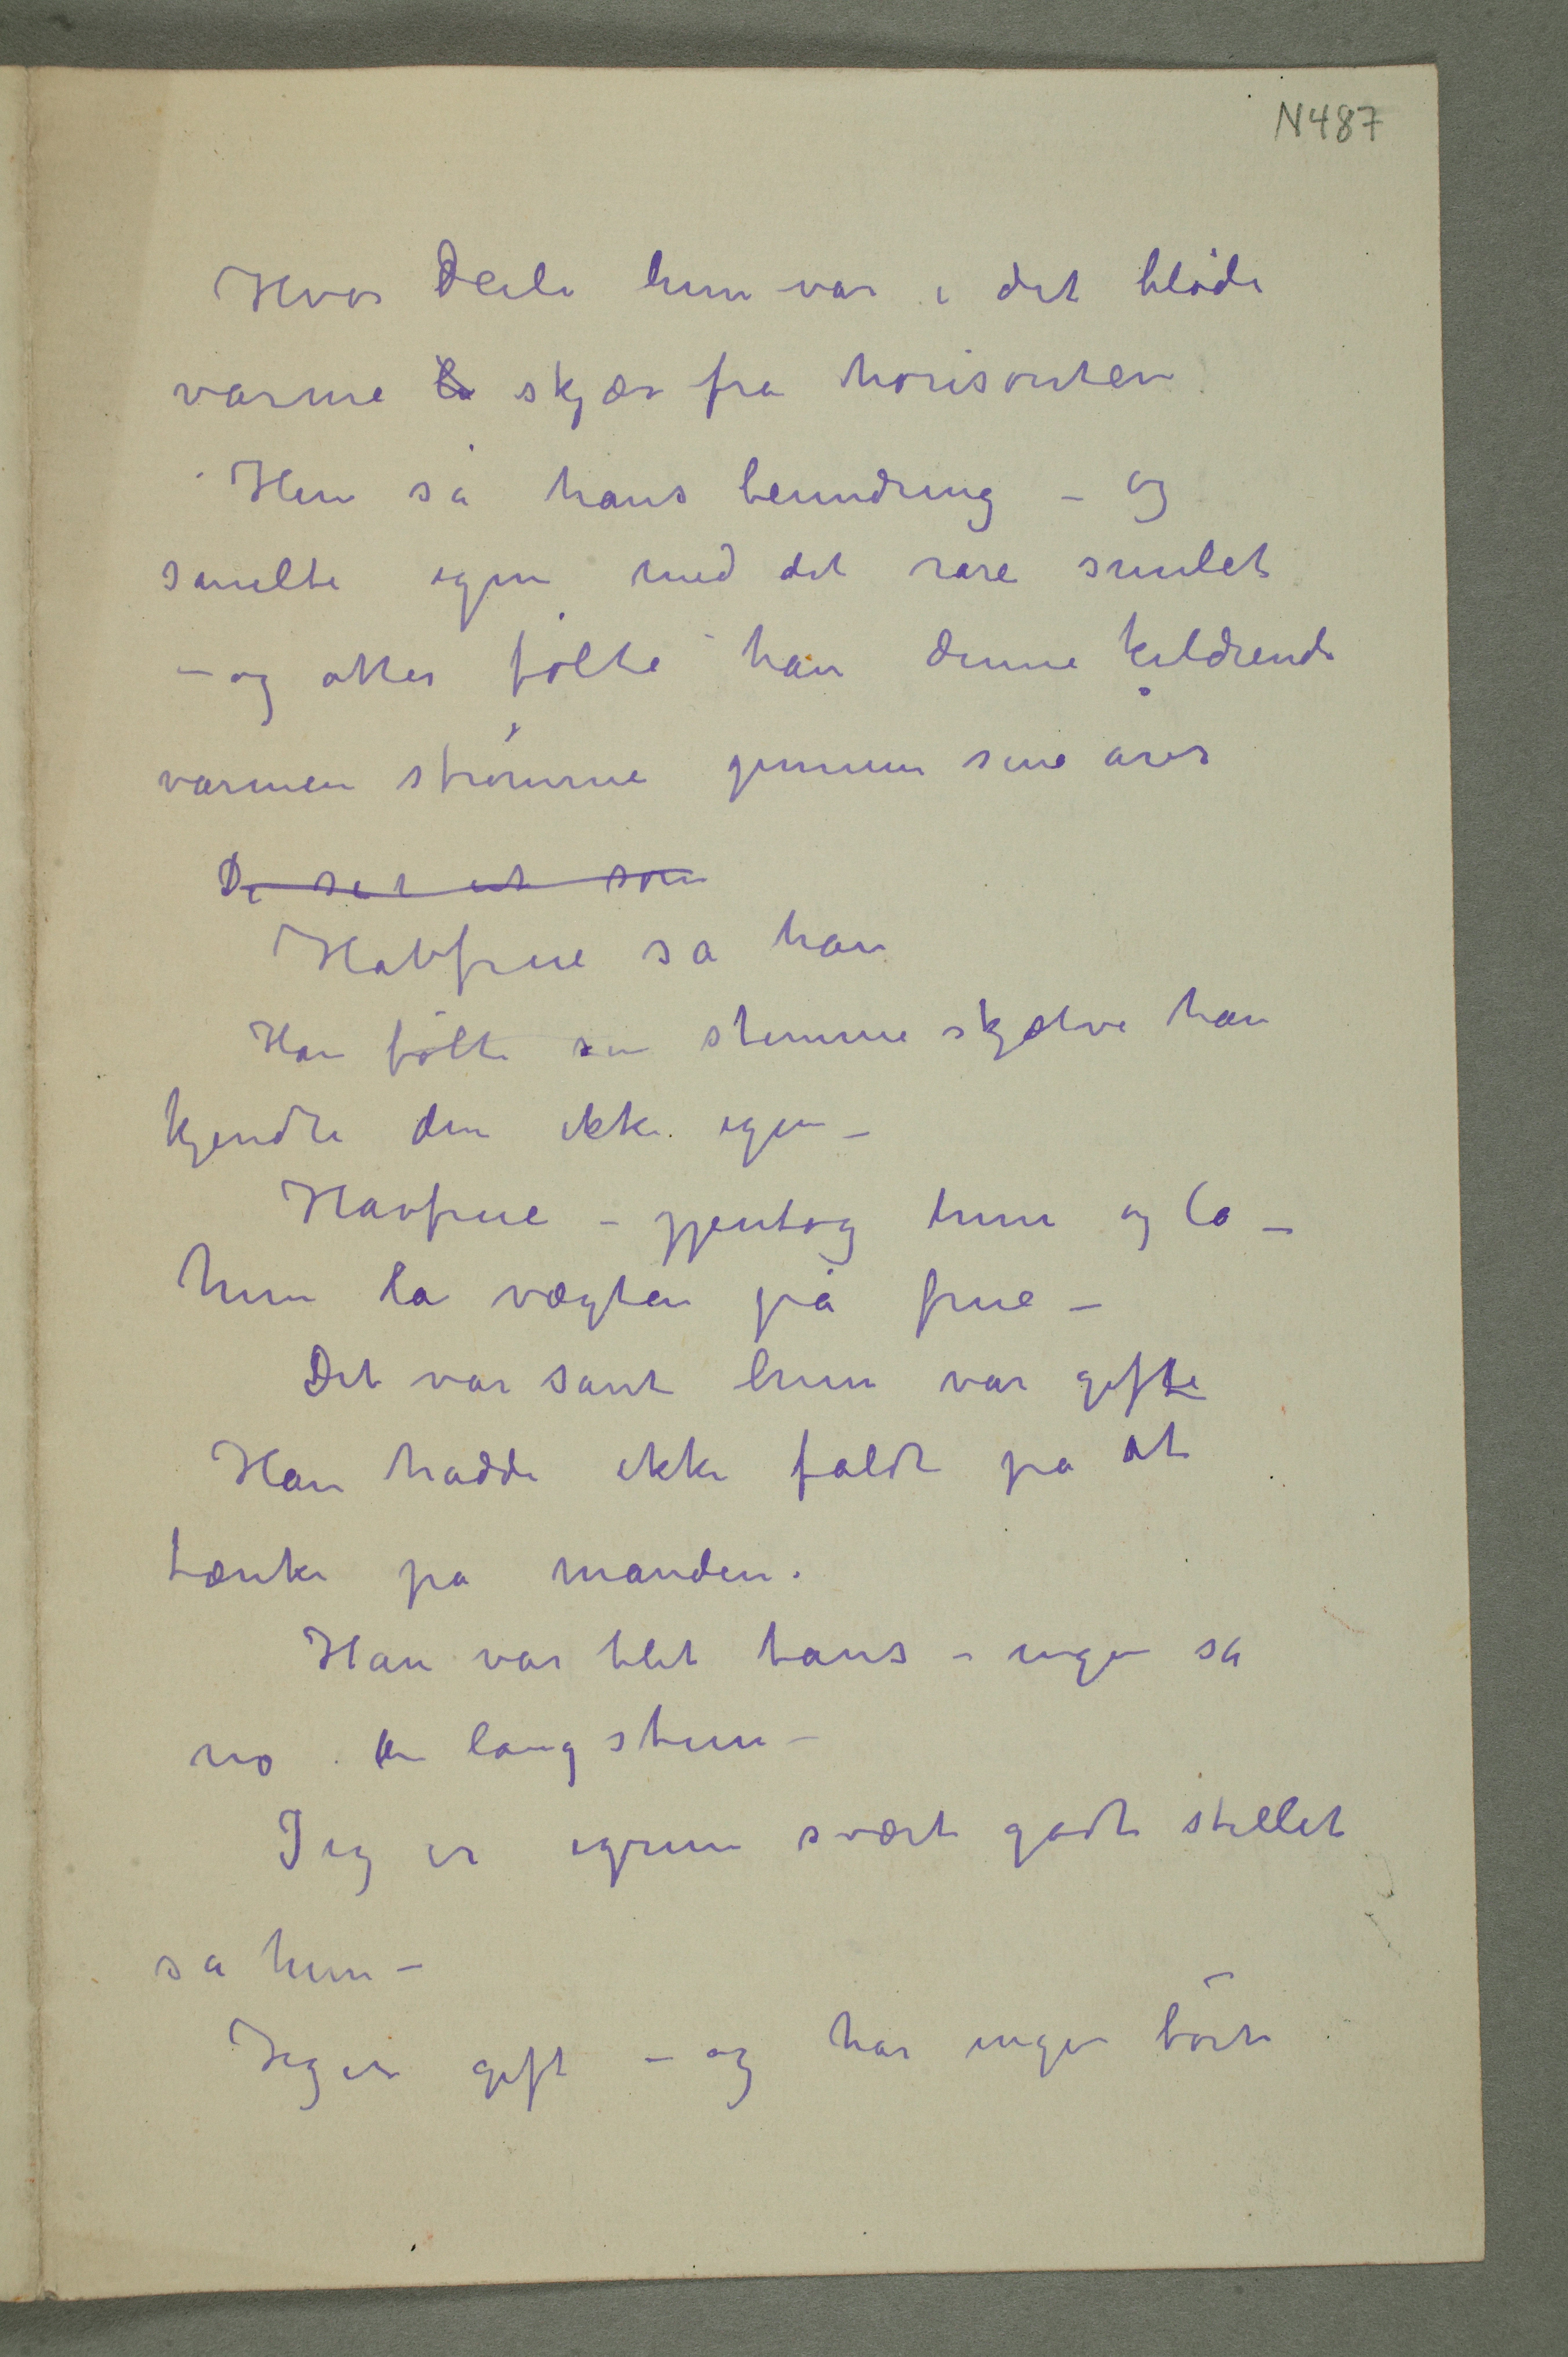 N487
Hvor deili hun var i det bløde
varme skjær fra horisonten
Hun så hans beundring – og
smilte igen med det rare smilet
– og atter følte han denne kildrende
varmen strømme gjennem sine årer
De ser ut som
Havfrue sa han
Han følte sin stemme skjælve han
kjendte den ikke igjen –
Havfrue – gjentog hun og lo –
hun la vægten på frue –
Det var sant hun var gifte
Han hadde ikke faldt på at
tænke på manden.
Han var blet taus – ingen sa
no en lang stun –
Jeg er igrun svært godt stillet
sa hun –
Jeg er gift – og har ingen børn